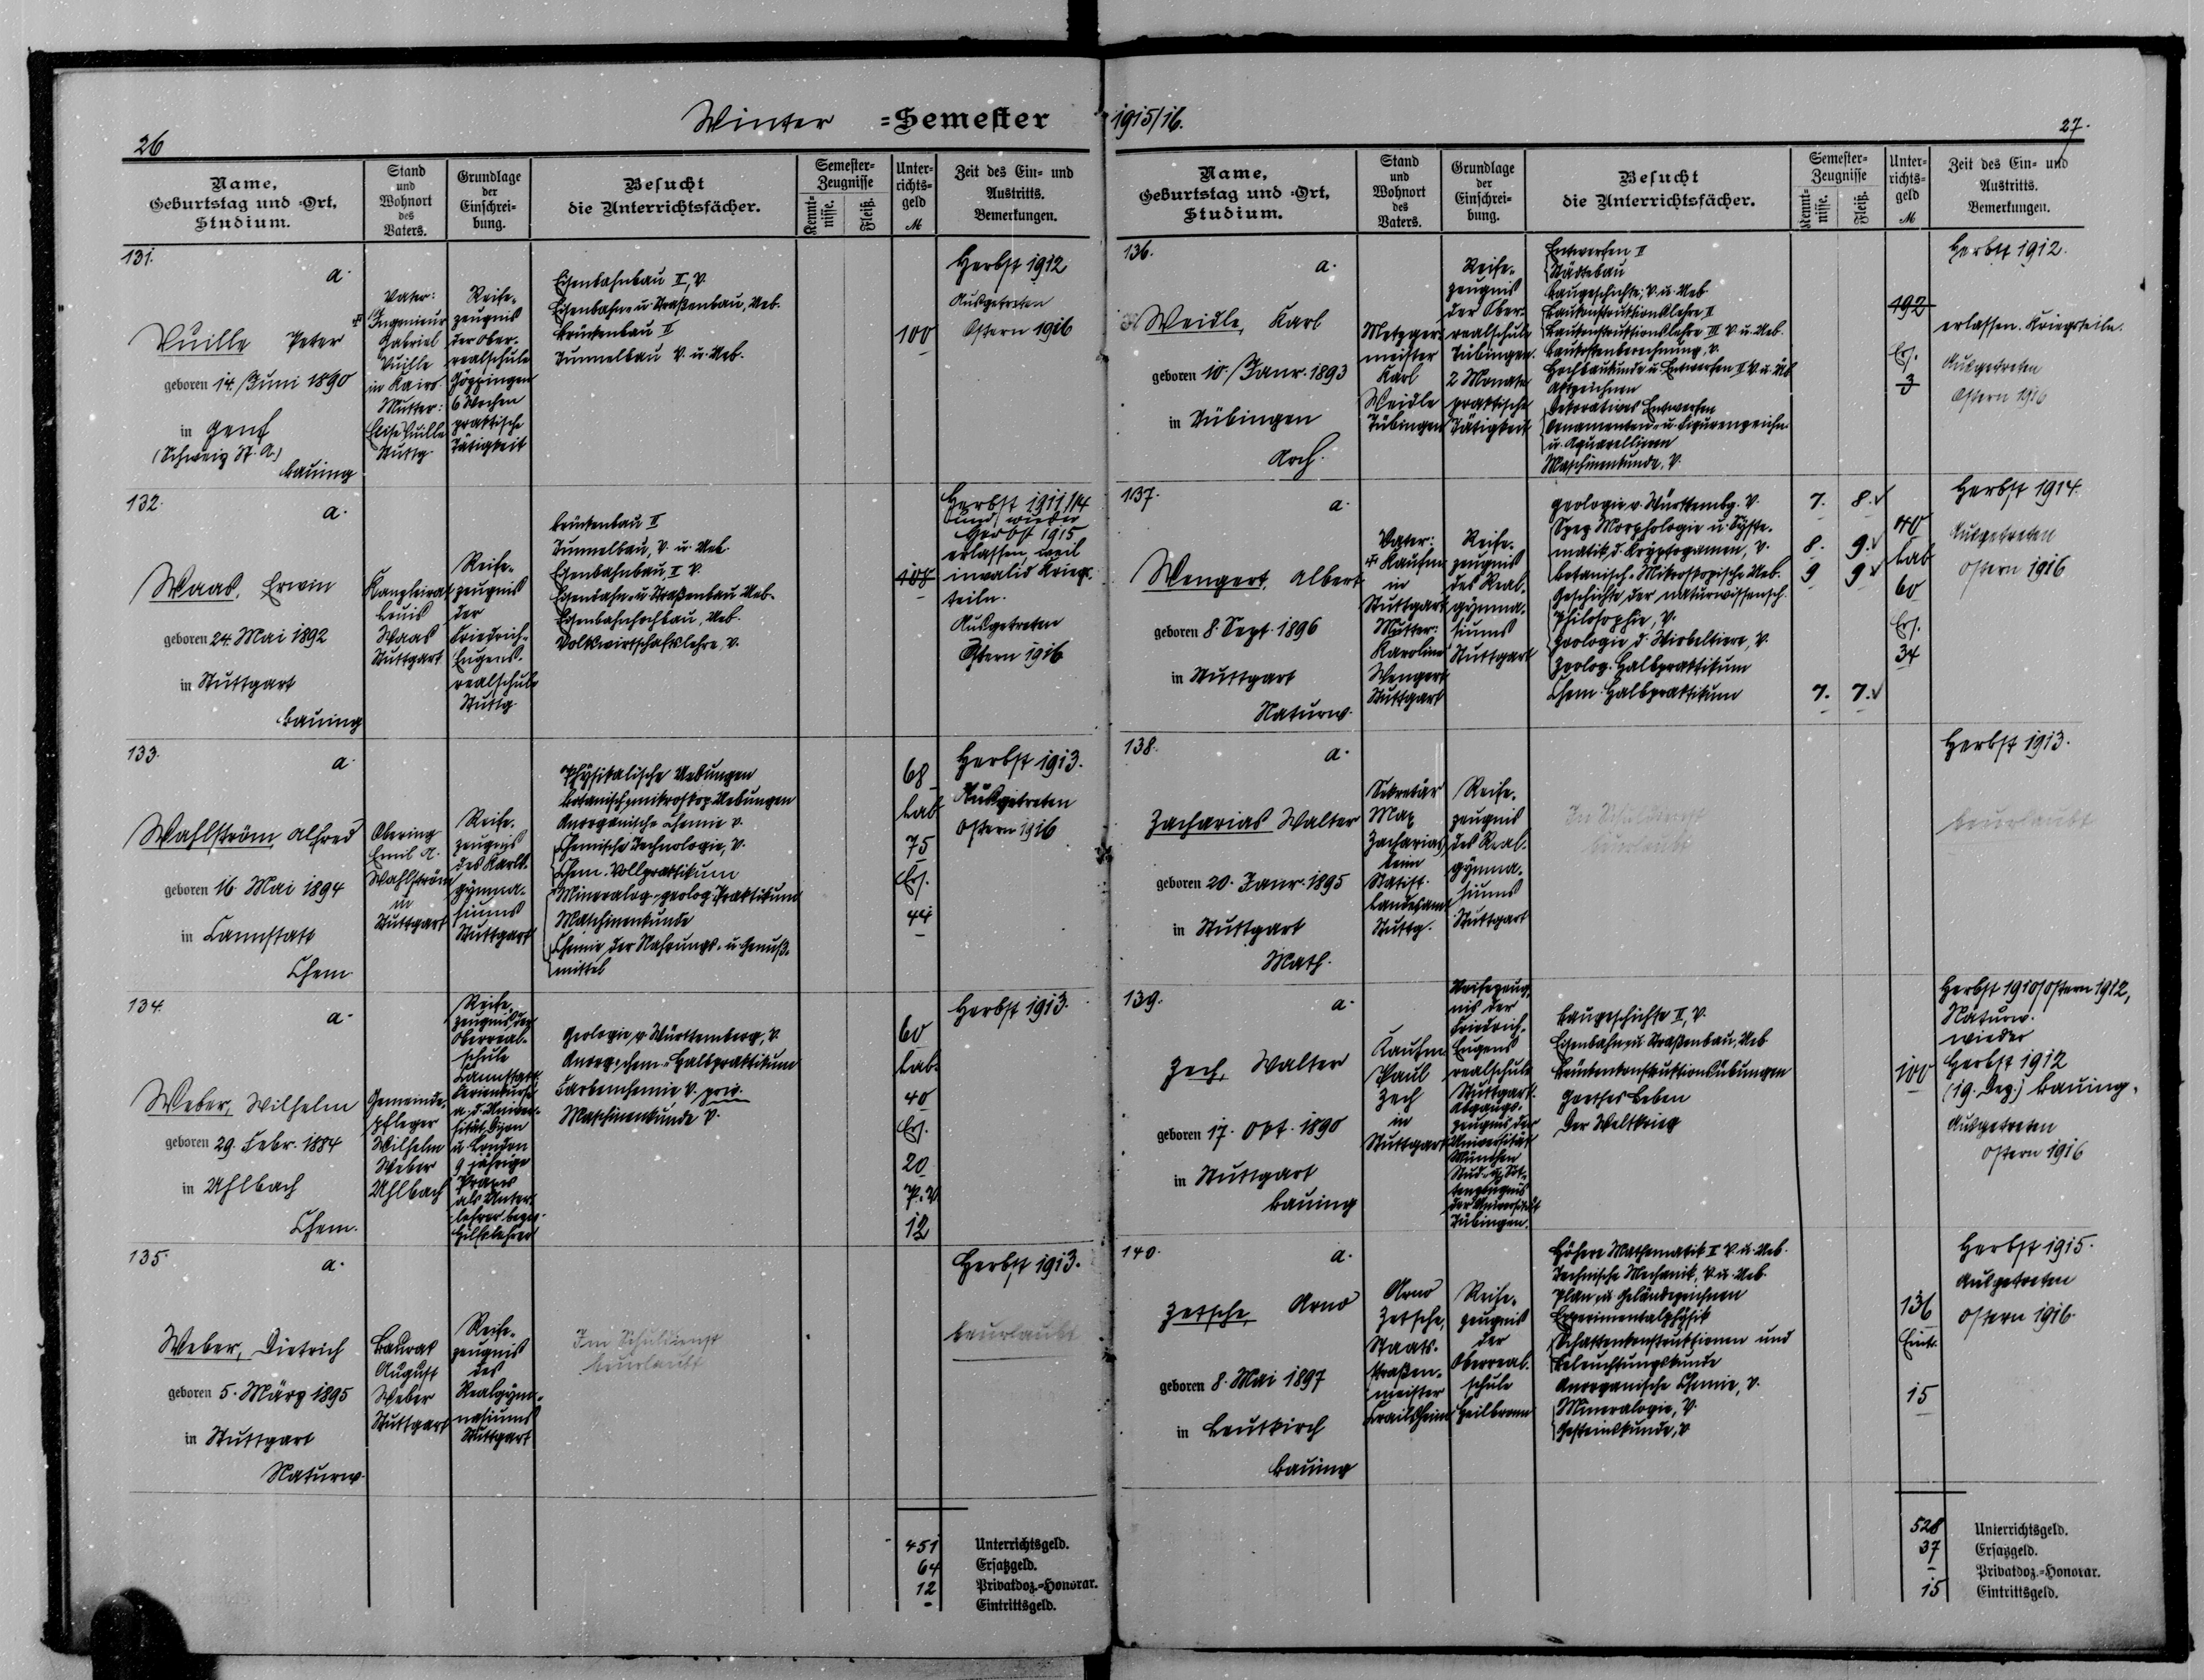 Winter =Semester 1915/16.
26
Name,
Geburtstag und =Ort,
Studium.
Stand
und
Wohnort
des
Vaters.
Grundlage
der
Einschrei=
bung.
Besucht
die Unterrichtsfächer.
Semester=
Zeugnisse
Kennt=
nisse.
Fleiß.
Unter=
richts=
geld
M
Zeit des Ein= und
Austritts.
Bemerkungen.
131.
a.
Vuille Peter
geboren 14. Juni 1890
in Genf
(Schweiz St. A.)
Bauing
Vater:
† Ingenieur
Gabriel
Vuille
in Kairo
Mutter:
Elise Vuille
Stuttg.
Reife-
zeugnis
der Ober-
realschule
Göppingen
6 Wochen
praktische
Tätigkeit
Eisenbahnbau II, V.
Eisenbahn- u. Straßenbau, Ueb.
Brückenbau II
Tunnelbau V. u. Ueb.
100
Herbst 1912
Ausgetreten
Ostern 1916
132.
a.
Waas, Erwin
geboren 24. Mai 1892
in Stuttgart
Bauing
Kanzleirat
Louis
Waas
Stuttgart
Reife-
zeugnis
der
Friedrich-
Eugens-
realschule
Stuttg.
Brückenbau II
Tunnelbau, V. u. Ueb.
Eisenbahnbau, II V.
Eisenbahn- u. Straßenbau Ueb.
Eisenbahnhochbau, Ueb.
Volkswirtschaftslehre, V.
108
Herbst 1911/14
und wieder
Herbst 1915
erlassen, weil
invalid Krieg-
teiln.
Ausgetreten
Ostern 1916
133.
a.
Wahlström Alfred
geboren 16 Mai 1894
in Cannstatt
Chem
Obering
Emil A.
Wahlström
in
Stuttgart
Reife-
zeugnis
des Karls-
gymna-
siums
Stuttgart
Physikalische Uebungen
Botanisch-mikroskop. Uebungen
Anorganische Chemie V.
Chemische Technologie, V.
Chem. Vollpraktikum
Mineralog.-geolog. Praktikum
Maschinenkunde
Chemie der Nahrungs- u. Genuß-
mittel
68
Lab
75
Ers.
44
Herbst 1913.
Ausgetreten
Ostern 1916
134.
a.
Weber, Wilhelm
geboren 29. Febr. 1884
in Uhlbach
Chem.
Gemeinde-
pfleger
Wilhelm
Weber
Uhlbach
Reife-
zeugnis der
Oberreal-
schule
Cannstatt
Ferienkurse
a. d. Univer-
sität Dijon
u. London
9 jährige
Praxis
als Unter-
lehrer bezw.
Hilfslehrer
Geologie v. Württemberg, V.
Anorg. chem. Halbpraktikum
Farbenchemie V. priv.
Maschinenkunde V.
60
Lab.
40
Ers.
20
P. V
12
Herbst 1913.
135.
a.
Weber, Dietrich
geboren 5. März 1895
in Stuttgart
Naturw.
Baurat
August
Weber
Stuttgart
Reife-
zeugnis
des
Realgym-
nasiums
Stuttgart
Im Schuldienst
beurlaubt
Herbst 1913.
beurlaubt
451 Unterrichtsgeld.
64 Ersatzgeld.
12 Privatdoz.=Honorar.
- Eintrittsgeld.
27.
Name,
Geburtstag und =Ort,
Studium.
Stand
und
Wohnort
des
Vaters.
Grundlage
der
Einschrei=
bung.
Besucht
die Unterrichtsfächer.
Semester=
Zeugnisse
Kennt=
nisse.
Fleiß.
Unter=
richts=
geld
M
Zeit des Ein= und
Austritts.
Bemerkungen.
136.
a.
Weidle, Karl
geboren 10. Janr. 1893
in Tübingen
Arch.
Metzger-
meister
Karl
Weidle
Tübingen
Reife-
zeugnis
der Ober-
realschule
Tübingen.
2 Monate
praktische
Tätigkeit
Entwerfen II
Städtebau
Baugeschichte, V. u. Ueb
Baukonstruktionslehre II
Baukonstruktionslehre III V. u. Ueb.
Baukostenberechnung, V.
Hochbaukunde u. Entwerfen II V. u. Üb
Aktzeichnen
Dekoratives Entwerfen
Ornamenten- u. Figurenzeichn.
u. Aquarellieren
Maschinenkunde, V.
192
Ers.
3
Herbst 1912.
erlassen. Kriegsteiln.
Ausgetreten
Ostern 1916
137.
a.
Wengert, Albert
geboren 8. Sept. 1896
in Stuttgart
Naturw.
Vater:
† Kaufm
in
Stuttgart
Mutter:
Karoline
Wengert
Stuttgart
Reife-
zeugnis
des Real-
gymna-
siums
Stuttgart
Geologie v. Württembg. V.
Spez. Morphologie u. Syste-
matik d. Kryptogamen, V.
Botanisch-Mikroskopische Ueb.
Geschichte der naturwissensch.
Philosophie, V.
Zoologie d. Wirbeltiere, V.
Zoolog. Halbpraktikum
Chem. Halbpraktikum
7. 8.
8. 9.
9 9
7. 7.
40
Lab
60
Ers.
34
Herbst 1914.
Ausgetreten
Ostern 1916
138.
a.
Zacharias Walter
geboren 20. Janr. 1895
in Stuttgart
Math.
Sekretär
Max
Zacharias
beim
Statist.
Landesamt
Stuttg.
Reife-
zeugnis
des Real-
gymna-
siums
Stuttgart
Im Schuldienst
beurlaubt
Herbst 1913.
beurlaubt
139.
a.
Zech, Walter
geboren 17. Okt. 1890
in Stuttgart
Bauing
Kaufm
Paul
Zech
in
Stuttgart
Reifezeug-
nis der
Friedrich-
Eugens
realschule
Stuttgart.
Abgangs-
zeugnis der
Universität
München
Stud.- u. Sit-
tenzeugnis
der Universität
Tübingen.
Baugeschichte II, V.
Eisenbahn- u. Straßenbau, Ueb
Brückenkonstruktionsübungen
Goethes Leben
Der Weltkrieg
100
Herbst 1910/Ostern 1912,
Naturw.
wieder
Herbst 1912
(19. Dez.) Bauing.
Ausgetreten
Ostern 1916
140.
a.
Zetsche, Arno
geboren 8. Mai 1897
in Leutkirch
Bauing
Arno
Zetsche,
Staats-
straßen-
meister
Crailsheim
Reife-
zeugnis
der
Oberreal-
schule
Heilbronn
Höhere Mathematik I V. u. Ueb.
Technische Mechanik, V. u. Ueb.
Plan- u. Geländezeichnen
Experimentalphysik
Schattenkonstruktionen und
Beleuchtungskunde
Anorganische Chemie, V.
Mineralogie, V.
Gesteinskunde, V
136
Eintr.
15
Herbst 1915.
Ausgetreten
Ostern 1916.
528 Unterrichtsgeld.
37 Ersatzgeld.
- Privatdoz.=Honorar.
15 Eintrittsgeld.